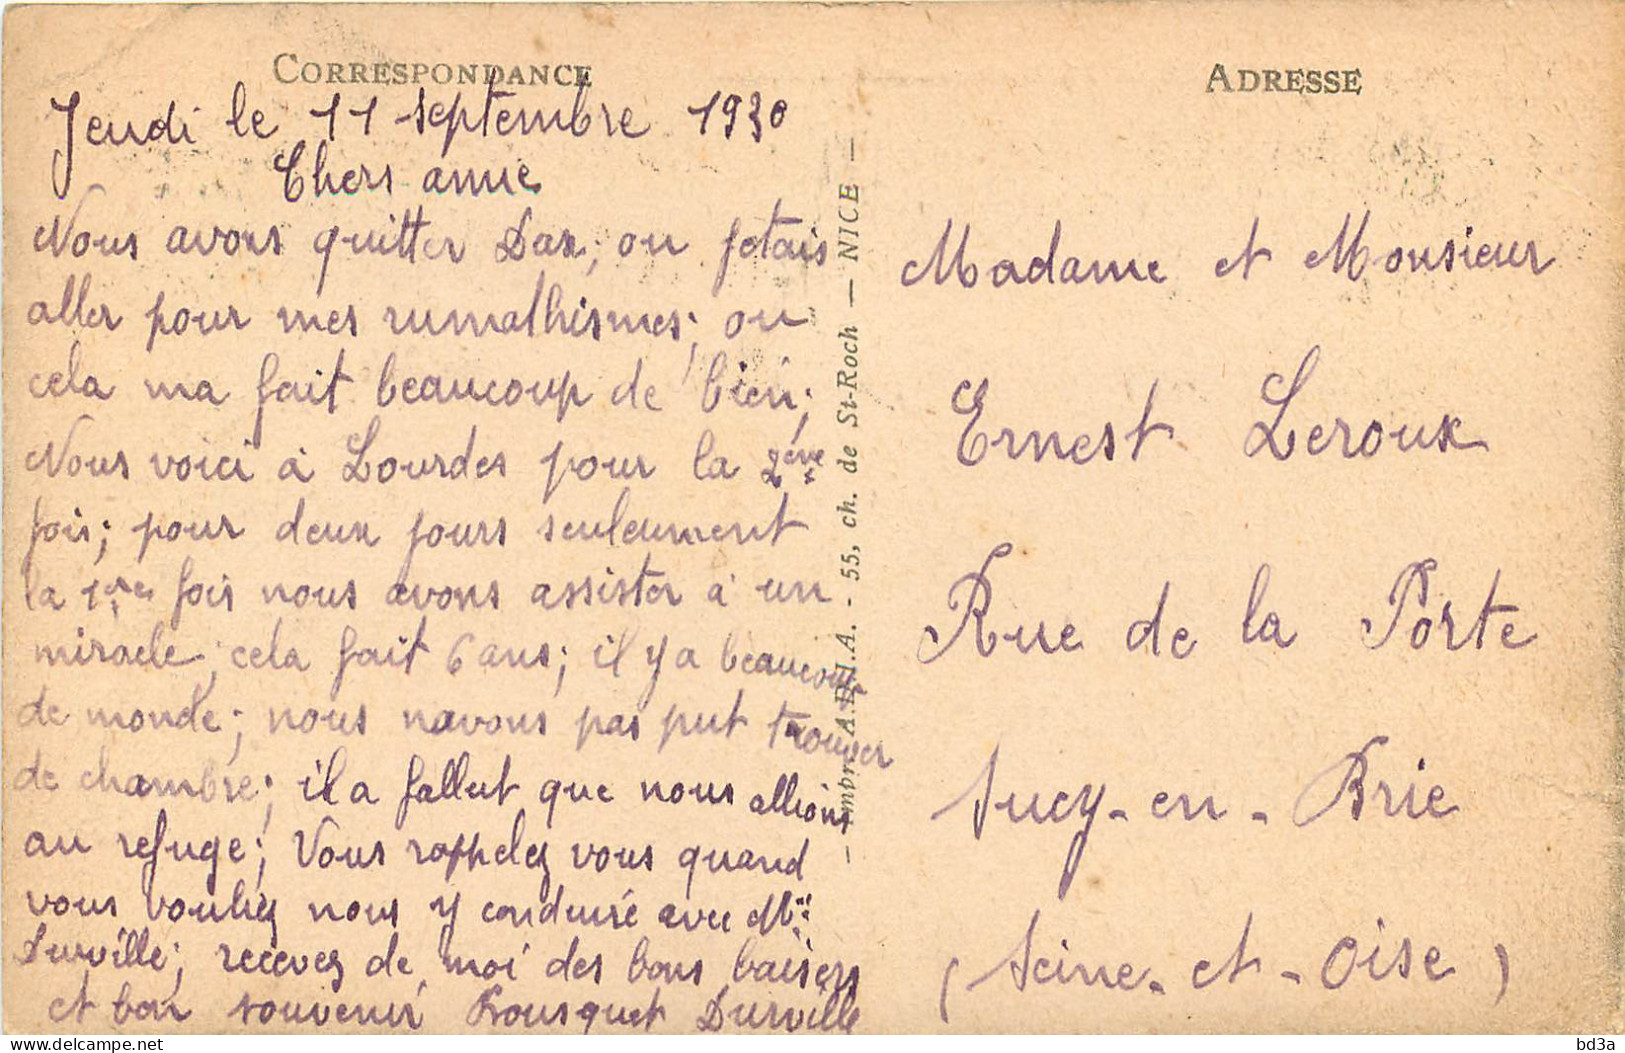 CORRESPONDANCE
Jeudi le 11 septembre 1930
Chers amie
Nous avons quitter Dax, ou jetais
aller pour mes rumathismes; ou
cela ma fait beaucoup de bien;
Nous voici à Lourdes pour la 2ème
fois; pour deux jours seulement
la 1ère fois nous avons assister à un
miracle, cela fait 6 ans; il y a beaucoup
de monde; nous navons pas put trouver
de chambre; il a fallut que nous allions
au refuge; Vous rappelez vous quand
vous vouliez nous y conduire avec
Durville; recevez de moi des bons baisers
et bon souvenir Bousquet Durville
ADIA. - 55, ch. de St-Roch — NICE —
ADRESSE
Madame et Monsieur
Ernest Leroux
Rue de la Porte
Sucy-en-Brie
(Seine-et-Oise)
delcampe.net
bd3a